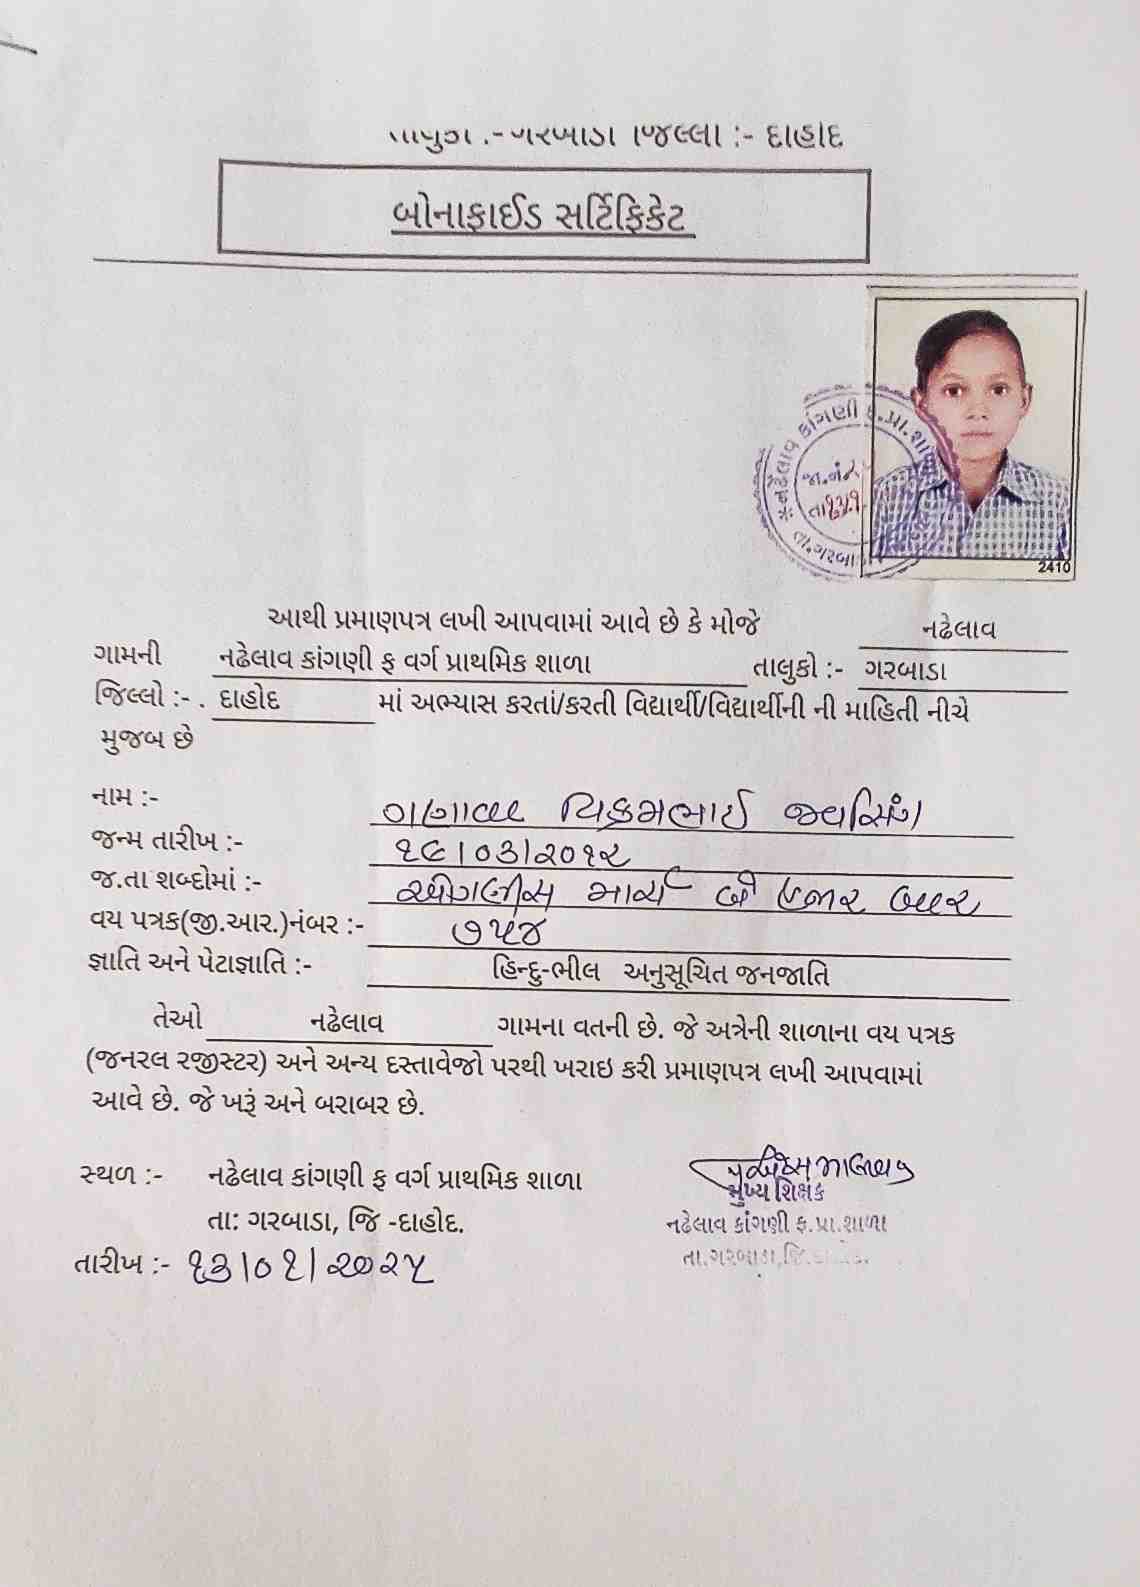 તાલુકા :- ગરબાડા જિલ્લા :- દાહોદ
બોનાફાઈડ સર્ટિફિકેટ
નઢેલાવ કાંગણી ફ.પ્રા.શા
જા.નં.
તા.ગરબાડા
2410
આથી પ્રમાણપત્ર લખી આપવામાં આવે છે કે મોજે નઢેલાવ
ગામની નઢેલાવ કાંગણી ફ વર્ગ પ્રાથમિક શાળા તાલુકો :- ગરબાડા
જિલ્લો :- . દાહોદ માં અભ્યાસ કરતાં/કરતી વિદ્યાર્થી/વિદ્યાર્થીની ની માહિતી નીચે
મુજબ છે
નામ :- ગણાવા વિક્રમભાઈ જવસિંગ
જન્મ તારીખ :- ૧૯/૦૩/૨૦૧૨
જ.તા શબ્દોમાં :- ઓગણીસ માર્ચ બે હજાર બાર
વય પત્રક(જી.આર.)નંબર :- ૭૫૪
જ્ઞાતિ અને પેટાજ્ઞાતિ :- હિન્દુ-ભીલ અનુસૂચિત જનજાતિ
તેઓ નઢેલાવ ગામના વતની છે. જે અત્રેની શાળાના વય પત્રક
(જનરલ રજીસ્ટર) અને અન્ય દસ્તાવેજો પરથી ખરાઇ કરી પ્રમાણપત્ર લખી આપવામાં
આવે છે. જે ખરૂં અને બરાબર છે.
સ્થળ :- નઢેલાવ કાંગણી ફ વર્ગ પ્રાથમિક શાળા
તા: ગરબાડા, જિ -દાહોદ.
તારીખ :- ૧૩/૦૧/૨૦૨૫
મુખ્ય શિક્ષક
નઢેલાવ કાંગણી ફ.પ્રા.શાળા
તા.ગરબાડા,જિ.